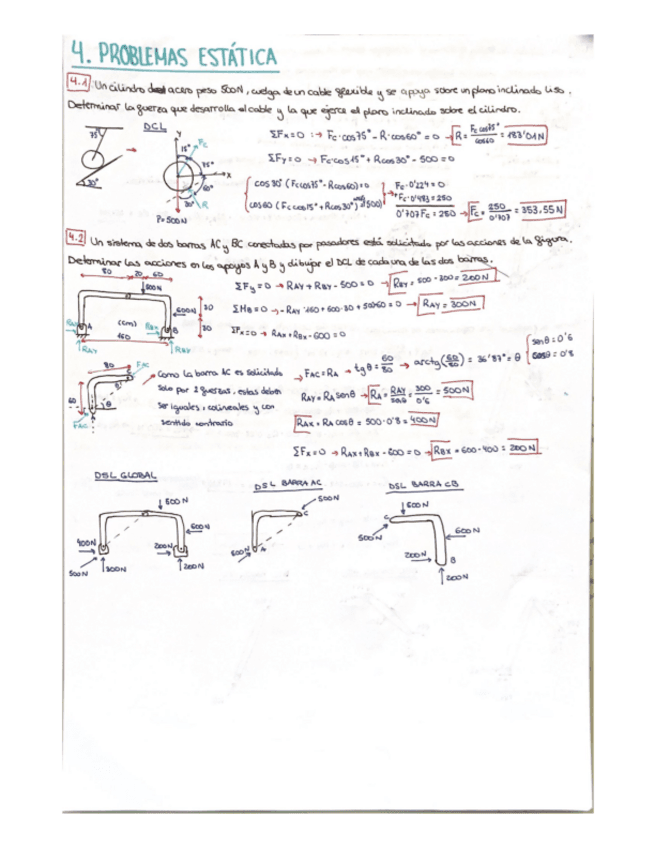 4. PROBLEMAS ESTÁTICA
4.1 Un cilindro de acero peso 500N, cuelga de un cable flexible y se apoya sobre un plano inclinado liso.
Determinar la fuerza que desarrolla el cable y la que ejerce el plano inclinado sobre el cilindro.
DCL
75°
30°
Y
15°
Fc
75°
X
60°
30°
R
P=500N
ΣFx=0 :→ Fc·cos75° - R·cos60° = 0 → R = Fc cos75° / cos60 = 183'01N
ΣFy=0 → Fc·cos15° + Rcos30° - 500 = 0
cos30 (Fc cos75° - Rcos60) = 0
cos60 (Fc cos15° + Rcos30° 500)
Fc·0'224 = 0
+Fc·0'483 = 250
0'707Fc = 250 → Fc = 250 / 0'707 = 353,55N
4.2 Un sistema de dos barras AC y BC conectadas por pasadores está solicitado por las acciones de la figura.
Determinar las acciones en los apoyos A y B y dibujar el DCL de cada una de las dos barras.
80 20 60
500N
600N
30
30
RAX A
(cm)
RBX B
160
RAY
RBY
ΣFy=0 → RAY + RBY - 500 = 0 → RBY = 500 - 300 = 200N
ΣMB=0 → -RAY·160 + 600·30 + 500·60 = 0 → RAY = 300N
ΣFx=0 → RAX + RBX - 600 = 0
80
FAC
60
θ
FAC
Como la barra AC es solicitada
solo por 2 fuerzas, estas deben
ser iguales, colineales y con
sentido contrario
→ FAC = RA → tgθ = 60/80 → arctg(60/80) = 36'87° = θ
senθ = 0'6
cosθ = 0'8
RAY = RA senθ → RA = RAY / senθ = 300 / 0'6 = 500N
RAX = RA cosθ = 500·0'8 = 400N
ΣFx=0 → RAX + RBX - 600 = 0 → RBX = 600 - 400 = 200N
DSL GLOBAL
500N
600N
400N
200N
500N
300N
200N
DSL BARRA AC
500N
C
500N
A
DSL BARRA CB
500N
C
600N
500N
200N
B
200N